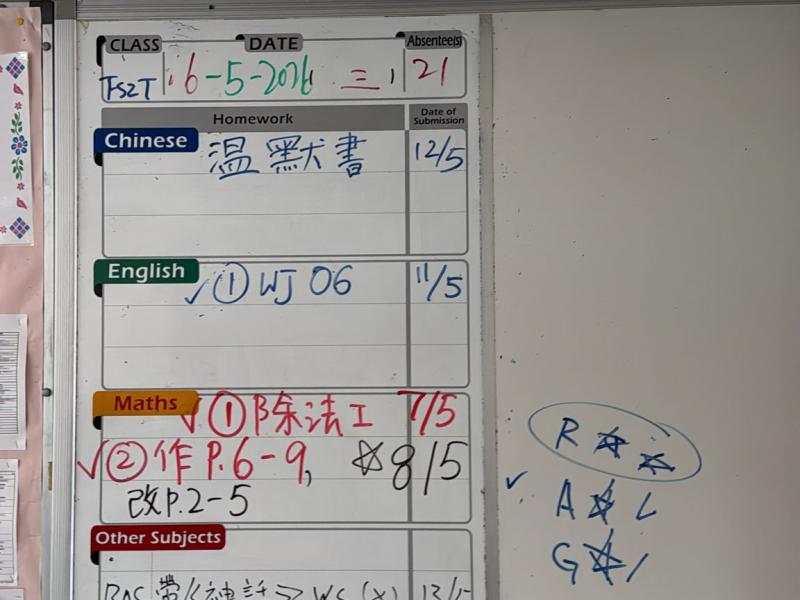 CLASS DATE Absentee(s)
6-5-2026 三 21
Homework Date of Submission
Chinese 溫默書 12/5
English ① WJ 06 11/5
Maths ① 除法工 7/5
② 作 P.6-9, ☆ 8/5
改 P.2-5
Other Subjects
R ☆
A ☆ L
G ☆